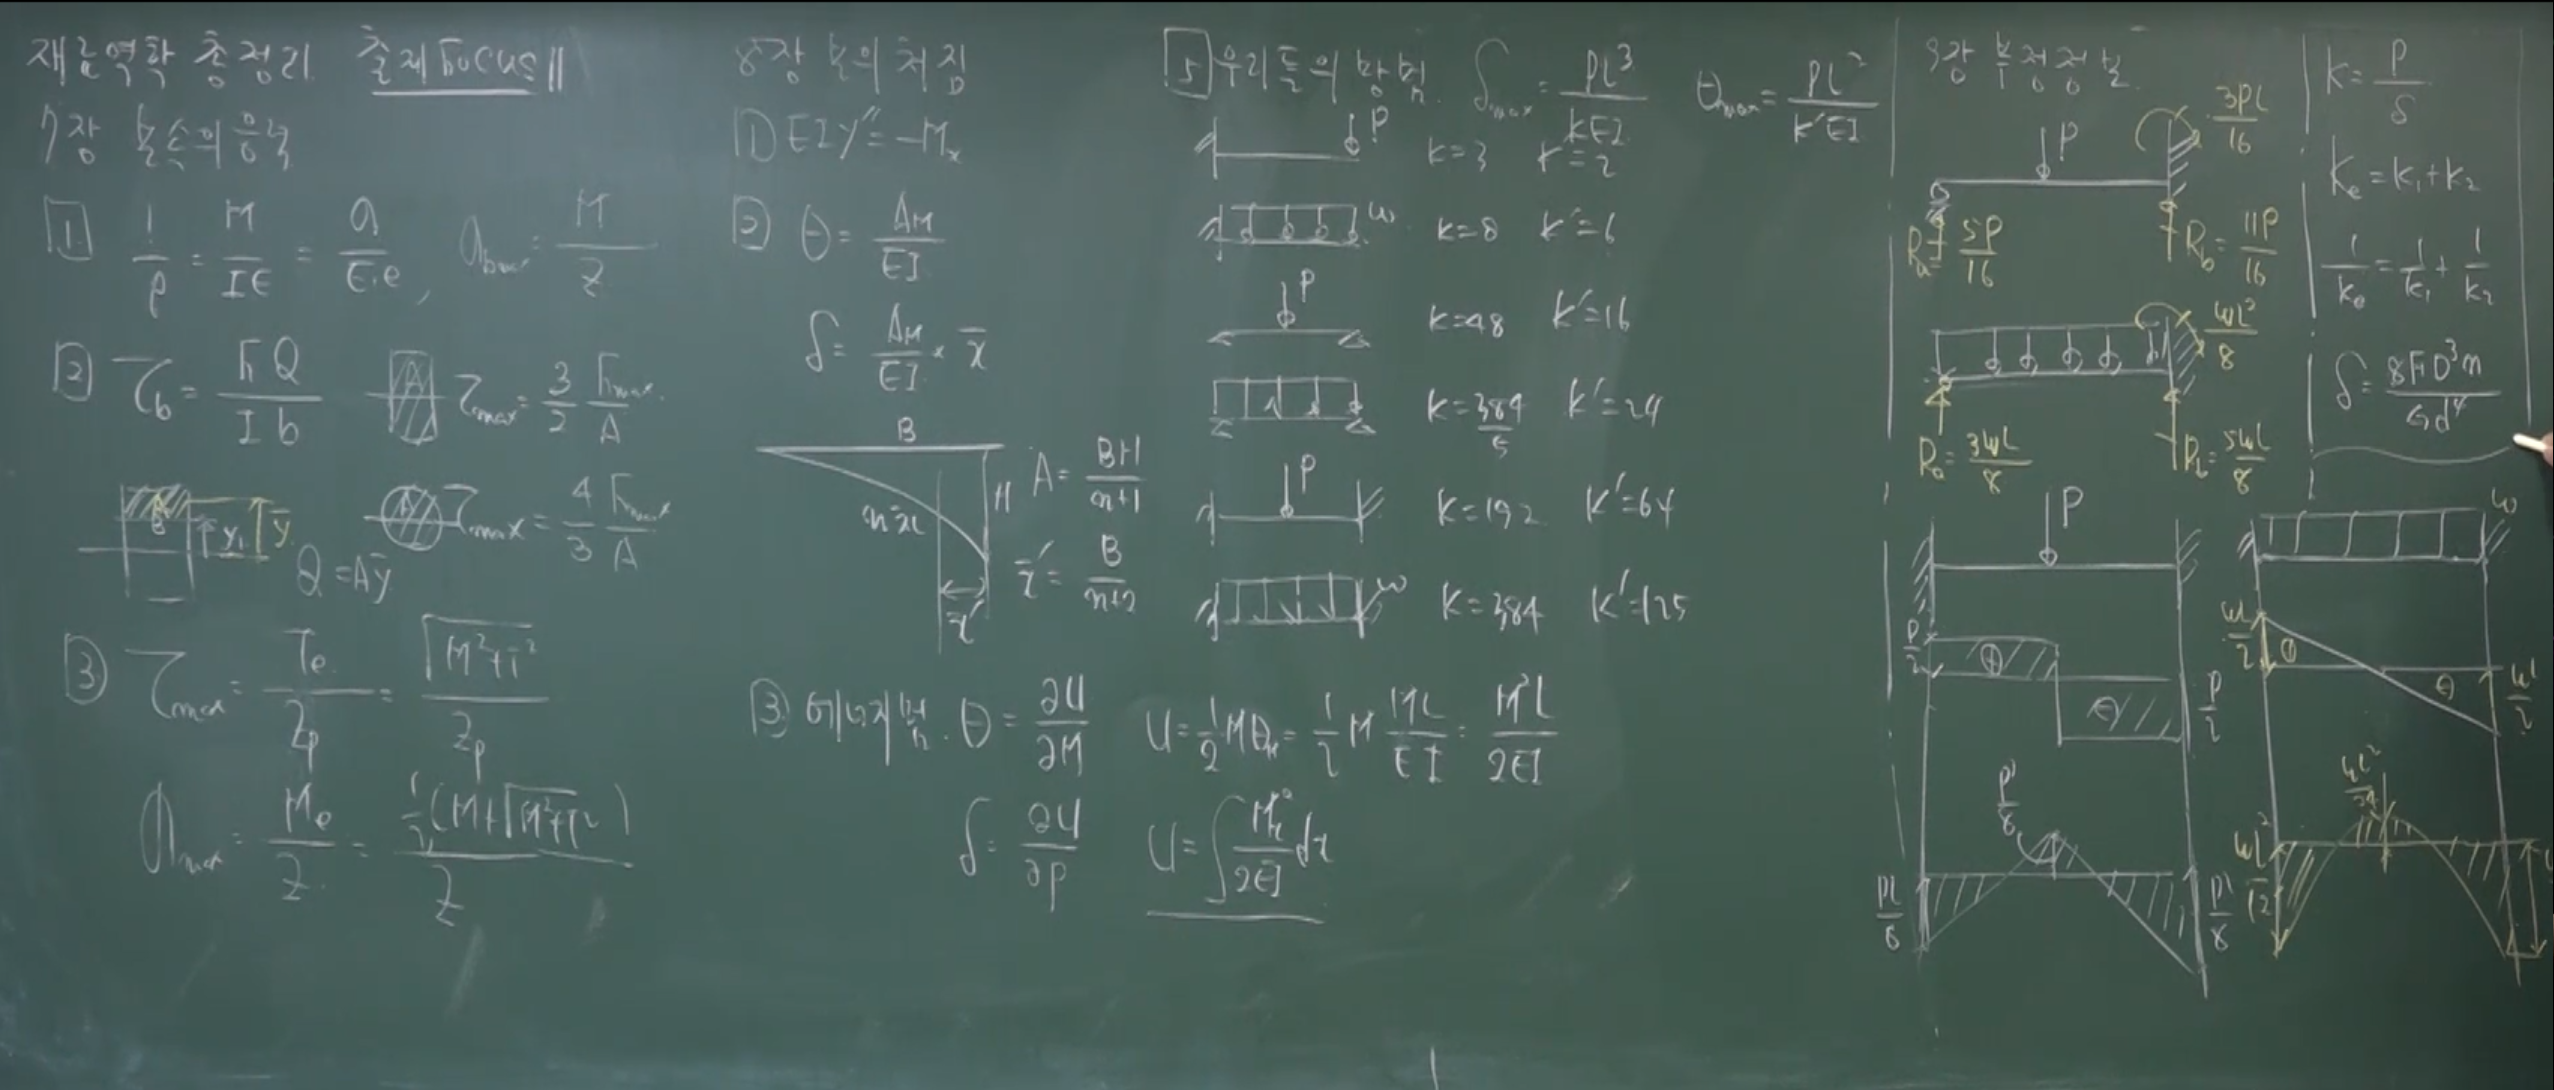 재료역학 총정리 출제 Focus 11
7장 보속의 응력
1. 1/ρ = M/IE = σ/E·e , σbmax = M/Z
2 τb = FQ/Ib A τmax = 3/2 Fmax/A
y1 ȳ Q = Aȳ A τmax = 4/3 Fmax/A
3 τmax = Te/Zp = √M²+T²/Zp
σmax = Me/Z = 1/2(M+√M²+T²)/Z
8장 보의 처짐
1 EIy″ = -Mx
2 θ = AM/EI
δ = AM/EI × x̄
B
n차 H A = BH/n+1
x̄′ x̄′ = B/n+2
3 에너지법. θ = ∂U/∂M U = 1/2 Mθ = 1/2 M ML/EI = M²L/2EI
δ = ∂U/∂P U = ∫ Mx²/2EI dx
5 우리들의 방법 δmax = PL³/KEI θmax = PL²/K′EI
P K=3 K′=2
w K=8 K′=6
P K=48 K′=16
K=384/5 K′=24
P K=192 K′=64
w K=384 K′=125
9장 부정정보
P 3PL/16
Ra = 5P/16 Rb = 11P/16
wL²/8
Ra = 3wL/8 Rb = 5wL/8
P
P/2 ⊕ ⊖ P/2
Pl/8
PL/8 Pl/8
K = P/δ
Ke = k1+k2
1/ke = 1/k1 + 1/k2
δ = 8FD³n/Gd⁴
w
wl/2 ⊕ ⊖ wl/2
wl²/24
wL²/12